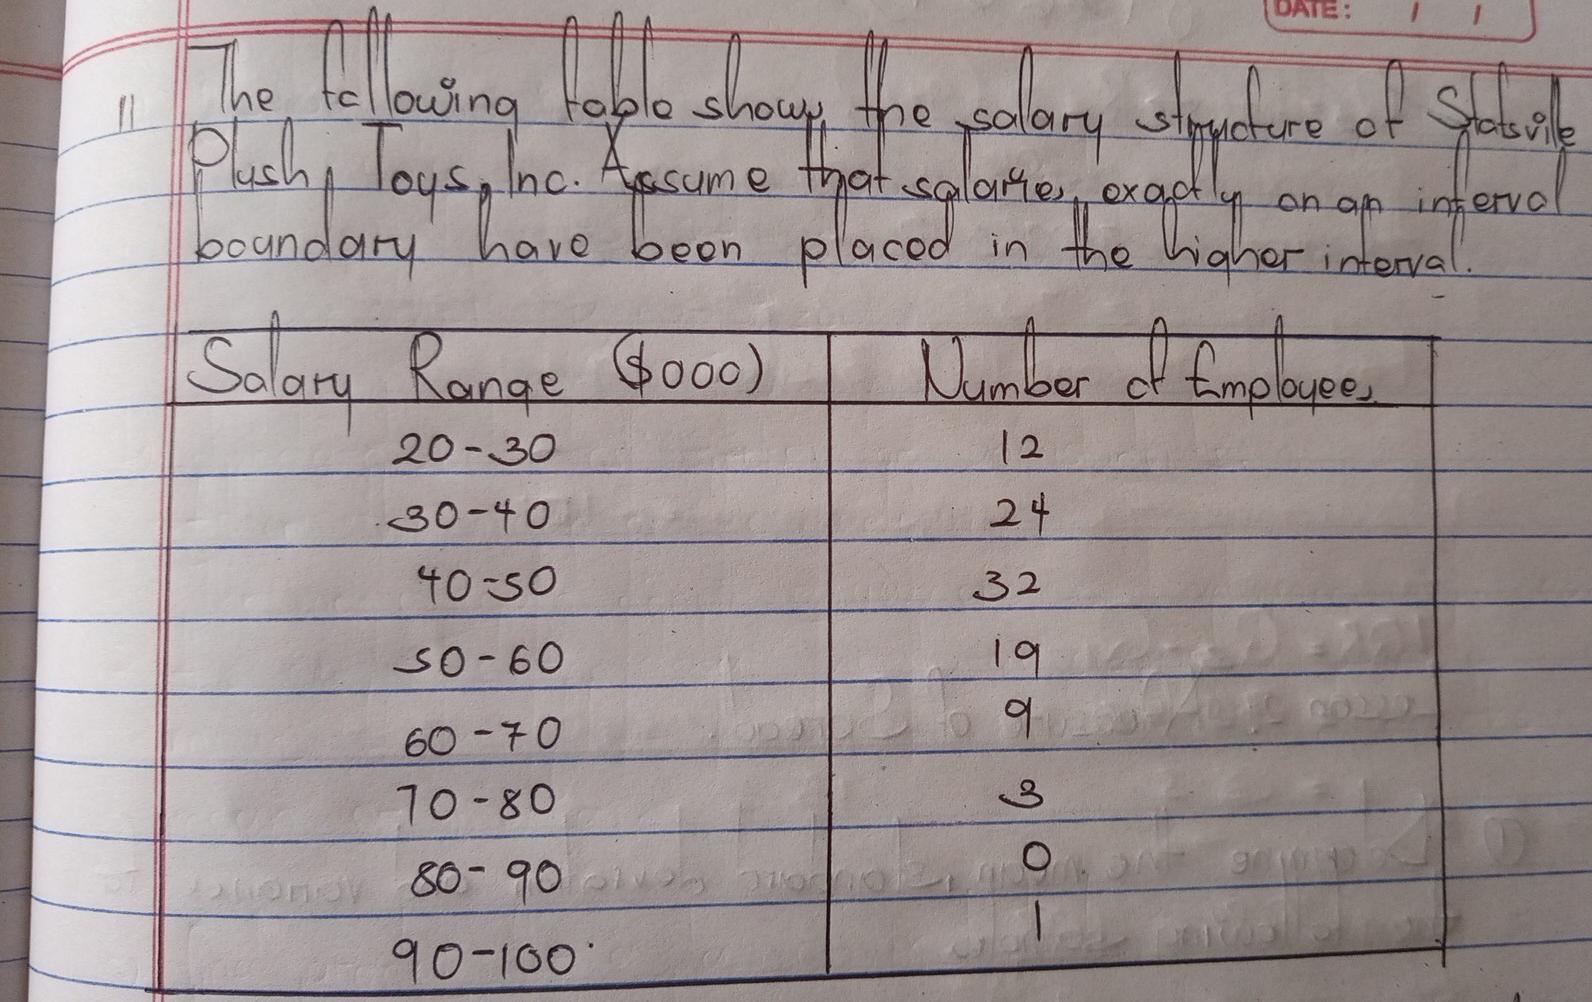 DATE: / /
11 The following table shows the salary structure of Statsville
Plush Toys, Inc. Assume that salaries exactly on an interval
boundary have been placed in the higher interval.
Salary Range ($000) Number of Employees
20-30 12
30-40 24
40-50 32
50-60 19
60-70 9
70-80 3
80-90 0
90-100 1